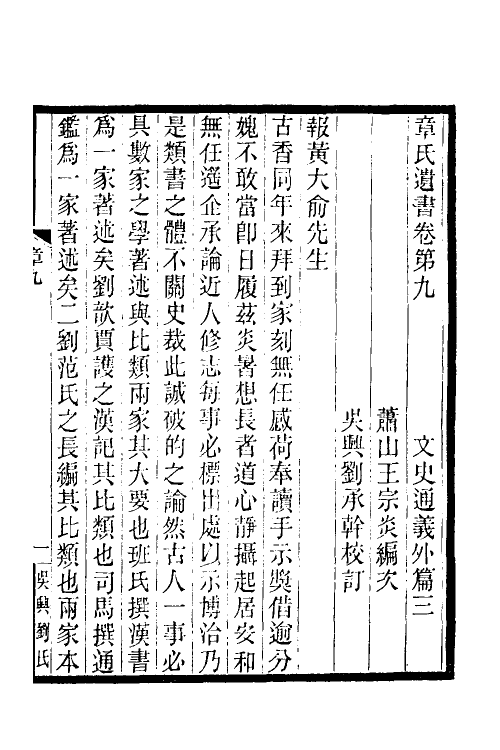 章氏遺書卷第九　　文史通義外篇三
蕭山王宗炎編次
吳興劉承幹校訂
報黃大俞先生
古香同年來拜到家刻無任感荷奉讀手示獎借逾分
媿不敢當卽日履茲炎暑想長者道心靜攝起居安和
無任遙企承論近人修志每事必標出處以示博洽乃
是類書之體不關史裁此誠破的之論然古人一事必
具數家之學著述與比類兩家其大要也班氏撰漢書
爲一家著述矣劉歆賈護之漢記其比類也司馬撰通
鑑爲一家著述矣二劉范氏之長編其比類也兩家本
章九
一
吳興劉氏